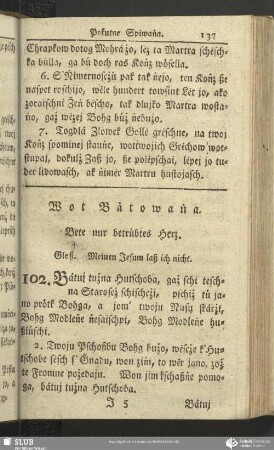 Pokutne Spiwaña. 137
Chrapkow dotog Mohrá żo, léż ta Martra schésch-
ka bülla, ga bú doch ras Końz wósella.
6. S Nimernosczü pak tak nejo, ten Końz ße
naspet roschijo, wéle hundert towsünt Lét jo, ako
żoraischni Żeń béscho, tak dlujko Martra wosta-
ño, gaż wézej Bohg büż ñebużo.
7. Togdlá Zlowek Gellé gréschne, na twoj
Końz spominej stawñe, wottwoijch Gréchow wot-
stupaj, dokulż Zaß jo, ße polépschaj, lépej jo tu-
der lidowasch, ak ñimér Martru hustojasch.
Wot Bátowaña.
Bete nur betrübtes Herz.
Gloß. Meinen Jesum laß ich nicht.
102. Bátuj tużna Hutschoba, gaż schi tesch-
na Staroscż schischcżi, pschiż tü ja-
no prótk Bohga, a jom' twoju Nusü skárżi,
Bohg Modleñe ñesaischpi, Bohg Modleñe hu-
ßlüschi.
2. Twoju Pschoßbu Bohg bużo, wésche k'Hut-
schobe sesch s' Gnadu, won ziñi, to wér jano, żoż
te Fromne pożedaju. Won jim kschaßñe pomo-
ga, bátuj tużna Hutschoba.
J 5 Bátuj
SLUB